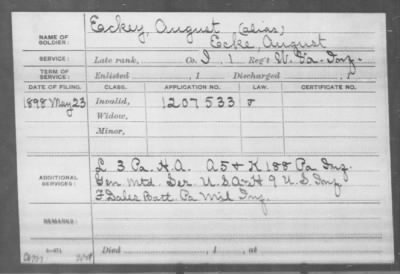 Eckey, August (alias)
NAME OF SOLDIER: Ecke, August
SERVICE: Late rank, Co. I, 1 Reg't W. Va. Inf.
TERM OF SERVICE: Enlisted , 1 Discharged , 1
DATE OF FILING. CLASS. APPLICATION NO. LAW. CERTIFICATE NO.
1898 May 23 Invalid, 1207533
Widow,
Minor,
L 3 Pa. H.A. A 5 & K 188 Pa Inf.
ADDITIONAL SERVICES: Gen Mtd. Ser. U.S.A. & H 9 U.S. Inf.
F Dales Batt. Pa Mil Inf.
REMARKS:
Died , 1 , at